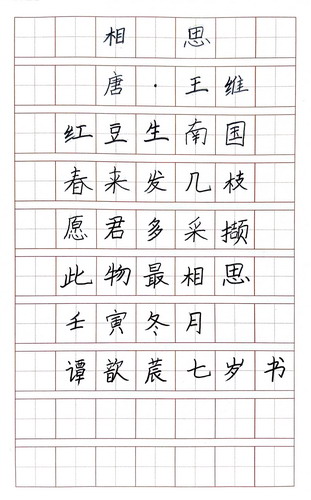 相思
唐·王维
红豆生南国
春来发几枝
愿君多采撷
此物最相思
壬寅冬月
谭歆蕽七岁书